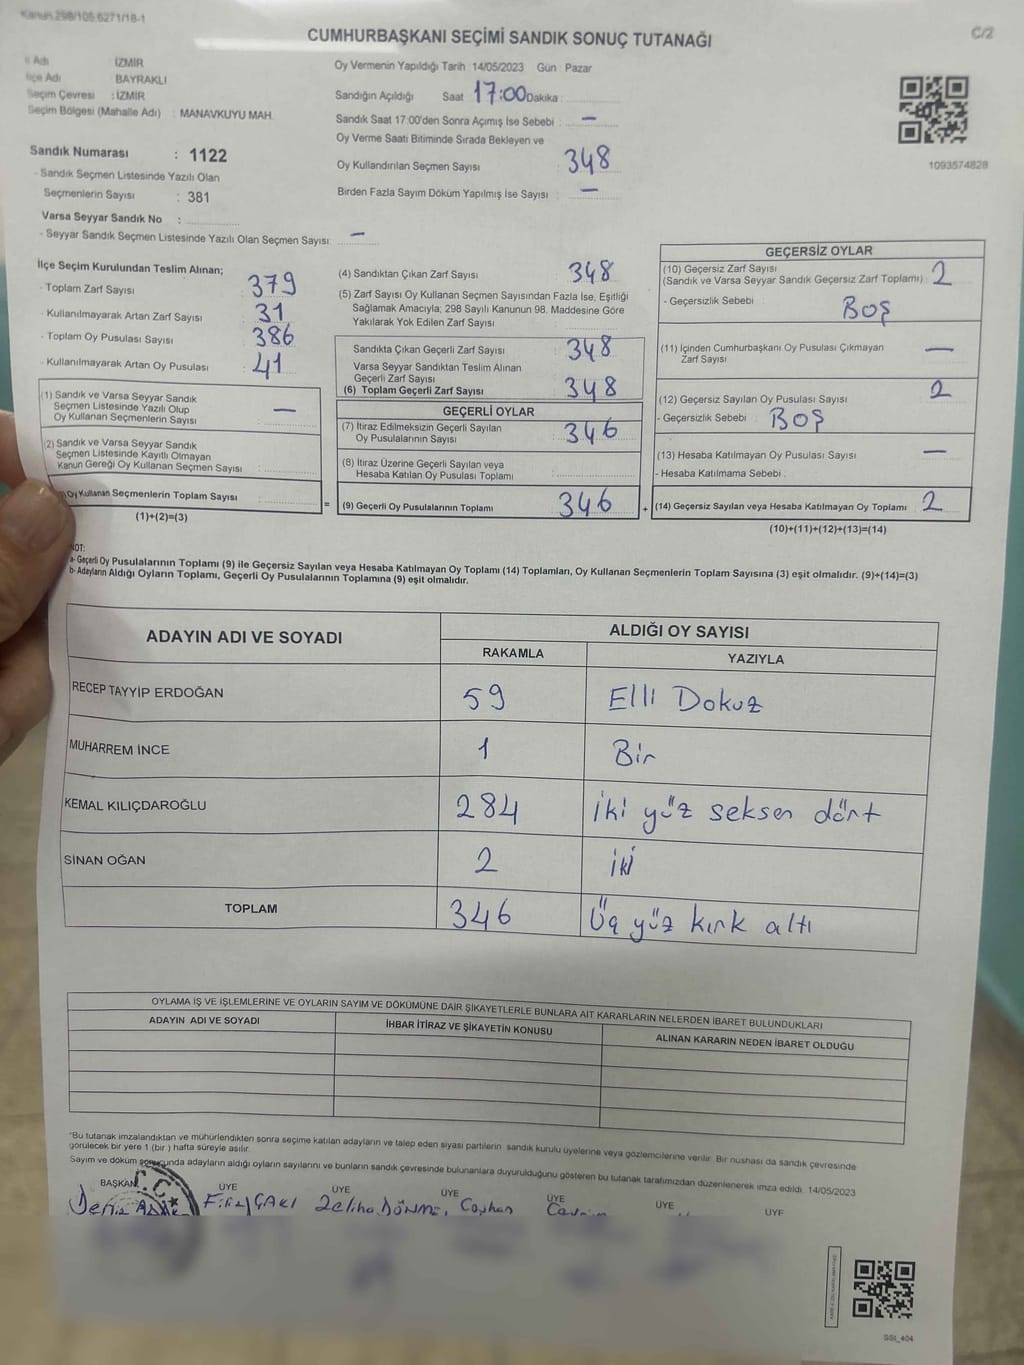 Kanun 298/105.6271/18-1
C/2
CUMHURBAŞKANI SEÇİMİ SANDIK SONUÇ TUTANAĞI
İl Adı İZMİR
İlçe Adı BAYRAKLI
Seçim Çevresi : İZMİR
Seçim Bölgesi (Mahalle Adı) : MANAVKUYU MAH.
Sandık Numarası : 1122
- Sandık Seçmen Listesinde Yazılı Olan
Seçmenlerin Sayısı : 381
Varsa Seyyar Sandık No :
- Seyyar Sandık Seçmen Listesinde Yazılı Olan Seçmen Sayısı: —
Oy Vermenin Yapıldığı Tarih 14/05/2023 Gün Pazar
Sandığın Açıldığı Saat 17:00 Dakika :
Sandık Saat 17:00'den Sonra Açımış İse Sebebi : —
Oy Verme Saati Bitiminde Sırada Bekleyen ve
Oy Kullandırılan Seçmen Sayısı : 348
Birden Fazla Sayım Döküm Yapılmış İse Sayısı : —
1093574828
İlçe Seçim Kurulundan Teslim Alınan;
- Toplam Zarf Sayısı : 379
- Kullanılmayarak Artan Zarf Sayısı : 31
- Toplam Oy Pusulası Sayısı : 386
- Kullanılmayarak Artan Oy Pusulası : 41
(1) Sandık ve Varsa Seyyar Sandık
Seçmen Listesinde Yazılı Olup
Oy Kullanan Seçmenlerin Sayısı : —
(2) Sandık ve Varsa Seyyar Sandık
Seçmen Listesinde Kayıtlı Olmayan
Kanun Gereği Oy Kullanan Seçmen Sayısı :
Oy Kullanan Seçmenlerin Toplam Sayısı : =
(1)+(2)=(3)
(4) Sandıktan Çıkan Zarf Sayısı : 348
(5) Zarf Sayısı Oy Kullanan Seçmen Sayısından Fazla İse, Eşitliği
Sağlamak Amacıyla; 298 Sayılı Kanunun 98. Maddesine Göre
Yakılarak Yok Edilen Zarf Sayısı :
Sandıkta Çıkan Geçerli Zarf Sayısı : 348
Varsa Seyyar Sandıktan Teslim Alınan
Geçerli Zarf Sayısı
(6) Toplam Geçerli Zarf Sayısı : 348
GEÇERLİ OYLAR
(7) İtiraz Edilmeksizin Geçerli Sayılan
Oy Pusulalarının Sayısı : 346
(8) İtiraz Üzerine Geçerli Sayılan veya
Hesaba Katılan Oy Pusulası Toplamı :
(9) Geçerli Oy Pusulalarının Toplamı : 346 +
GEÇERSİZ OYLAR
(10) Geçersiz Zarf Sayısı
(Sandık ve Varsa Seyyar Sandık Geçersiz Zarf Toplamı) : 2
- Geçersizlik Sebebi : Boş
(11) İçinden Cumhurbaşkanı Oy Pusulası Çıkmayan
Zarf Sayısı —
(12) Geçersiz Sayılan Oy Pusulası Sayısı : 2
- Geçersizlik Sebebi : BOŞ
(13) Hesaba Katılmayan Oy Pusulası Sayısı : —
- Hesaba Katılmama Sebebi :
(14) Geçersiz Sayılan veya Hesaba Katılmayan Oy Toplamı : 2
(10)+(11)+(12)+(13)=(14)
NOT:
a- Geçerli Oy Pusulalarının Toplamı (9) ile Geçersiz Sayılan veya Hesaba Katılmayan Oy Toplamı (14) Toplamları, Oy Kullanan Seçmenlerin Toplam Sayısına (3) eşit olmalıdır. (9)+(14)=(3)
b- Adayların Aldığı Oyların Toplamı, Geçerli Oy Pusulalarının Toplamına (9) eşit olmalıdır.
ADAYIN ADI VE SOYADI ALDIĞI OY SAYISI
RAKAMLA YAZIYLA
RECEP TAYYİP ERDOĞAN 59 Elli Dokuz
MUHARREM İNCE 1 Bir
KEMAL KILIÇDAROĞLU 284 iki yüz seksen dört
SİNAN OĞAN 2 iki
TOPLAM 346 Üç yüz kırk altı
OYLAMA İŞ VE İŞLEMLERİNE VE OYLARIN SAYIM VE DÖKÜMÜNE DAİR ŞİKAYETLERLE BUNLARA AİT KARARLARIN NELERDEN İBARET BULUNDUKLARI
ADAYIN ADI VE SOYADI İHBAR İTİRAZ VE ŞİKAYETİN KONUSU ALINAN KARARIN NEDEN İBARET OLDUĞU
"Bu tutanak imzalandıktan ve mühürlendikten sonra seçime katılan adayların ve talep eden siyasi partilerin sandık kurulu üyelerine veya gözlemcilerine verilir. Bir nushası da sandık çevresinde
görülecek bir yere 1 (bir ) hafta süreyle asılır.
Sayım ve döküm sonucunda adayların aldığı oyların sayılarını ve bunların sandık çevresinde bulunanlara duyurulduğunu gösteren bu tutanak tarafımızdan düzenlenerek imza edildi. 14/05/2023
BAŞKAN ÜYE ÜYE ÜYE ÜYE ÜYE ÜYE
Zeliha DÖNMEZ Ceyhan
SSI_404